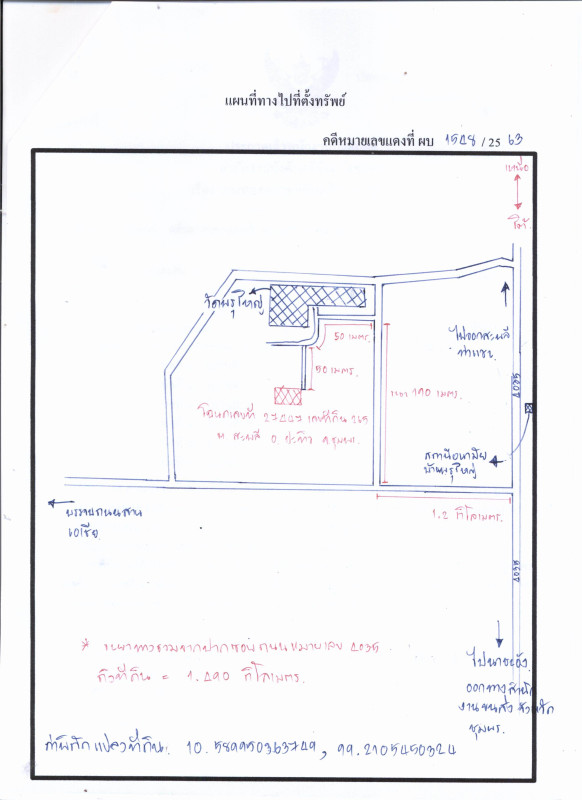 แผนที่ทางไปที่ตั้งทรัพย์
คดีหมายเลขแดงที่ ผบ 1548 / 25 63
เหนือ
ใต้
วัดพรุใหญ่
50 เมตร.
50 เมตร.
ระยะ 190 เมตร.
ไปออกสะพลี
4035
โฉนดเลขที่ 27447 เลขที่ดิน 269
ต. สะพลี อ. ปะทิว จ.ชุมพร.
สถานีอนามัย
บ้านพรุใหญ่
1.2 กิโลเมตร.
บรรจบถนนสาย
เอเซีย
4035
* ระยะทางรวมจากปากซอย ถนนหมายเลข 4035
ถึงที่ดิน = 1.490 กิโลเมตร.
ออกทางสำนัก
งานขนส่งจังหวัด
ชุมพร.
ค่าพิกัดแปลงที่ดิน. 10.589950363749, 99.2105450324